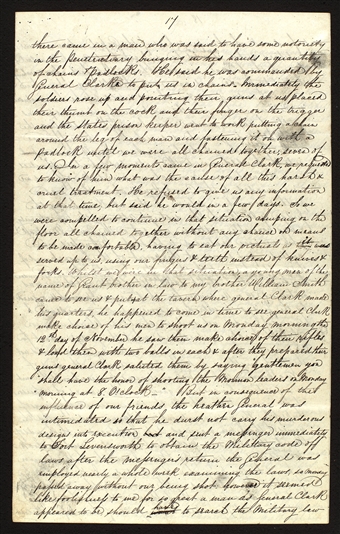 17
there came in a man who was said to have some notoriety
in the penitentiary bringing in his hands a quantity
of chains & Padlocks. He said he was commanded by
General Clark to put us in chains. Immediately the
soldiers rose up and pointing their guns at us placed
their thumb on the cock and their finger on the trigger
and the States prison keeper went to work putting a chain
around the leg of each man and fastening it on with a
padlock until we were all chained together seven of
us. In a few moments came in General Clark, we requested
to know of him what was the cause of all this harsh &
cruel treatment. He refused to give us any information
at that time, but said he would in a few days. So we
were compelled to continue in that situation camping on the
floor all chained together without any chance or means
to be made comfortable having to eat our victuals as they was
served up to us, using our fingers & teeth instead of knives &
forks. Whilst we were in that situation a young man of the
name of Grant brother in law to my brother William Smith
came to see us & put up at the tavern where general Clark made
his quarters, he happened to come in time to see general Clark
make choice of his men to shoot us on Monday morning the
12th day of November he saw them make choice of their rifles
& load them with two balls in each & after they prepared their
guns general Clark saluted them by saying "gentlemen you
shall have the honor of shooting the Mormon leaders on Monday
morning at 8 O'Clock." But in consequence of the
influence of our friends, the heathen General was
intimidated so that he durst not carry his murderous
designs into execution and sent a messenger immediately
to Fort Leavenworth to obtain the Military code of
laws after the messengers return the General was
employed nearly a whole week examining the laws, so monday
passed away without our being shot however it seemed
like foolishness to me for so great a man as General Clark
appeared to be should have to search the Military law